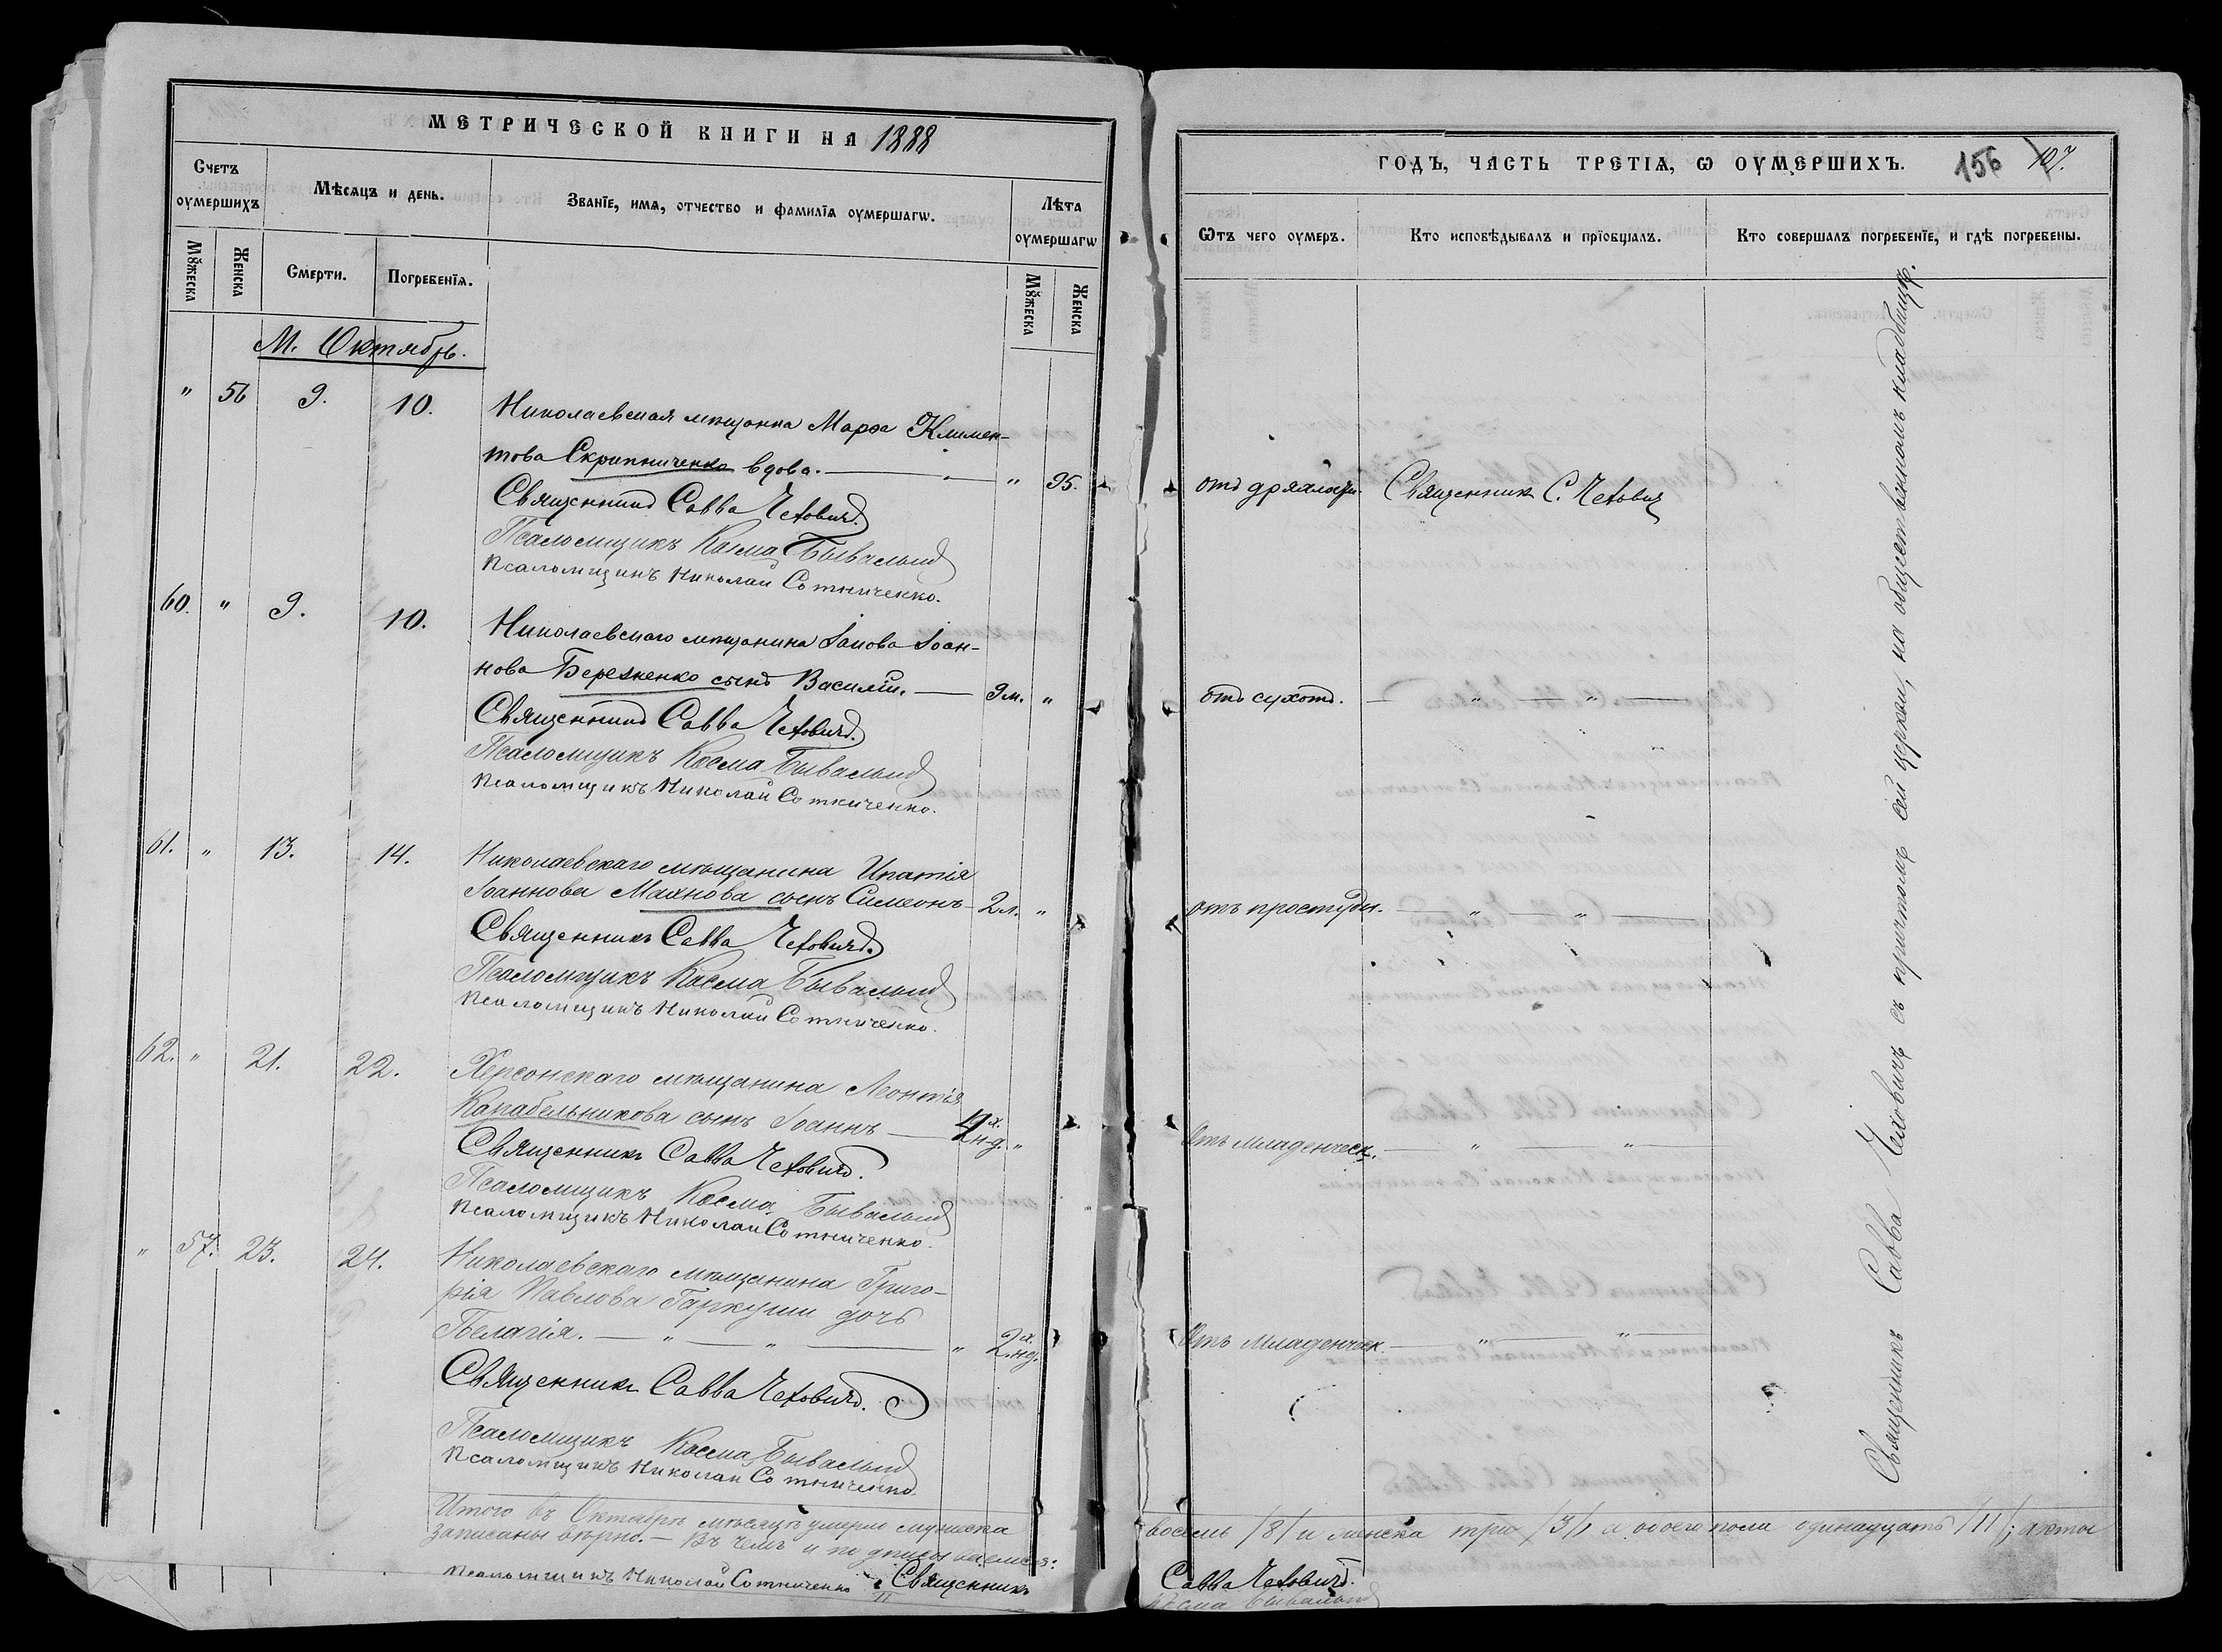 МЕТРИЧЕСКОЙ КНИГИ НА 1888
Счетъ оумершихъ
Мѣсяцъ и день.
Званїе, имѧ, отчество и фамилїѧ оумершагѡ.
Лѣта оумершагѡ
Мꙋжеска
Женска
Смерти.
Погребенїѧ.
Мꙋжеска
Женска
М. Октябрь.
" 56 9. 10. Николаевская мѣщанка Марѳа Климен-
това Скрипниченко вдова. " 95.
Священникъ Савва Чехович.
Псаломщикъ Косма Бывалый
Псаломщикъ Николай Сотниченко.
60. " 9. 10. Николаевскаго мѣщанина Іакова Іоан-
нова Березненко сынъ Василій. 9 м. "
Священникъ Савва Чехович.
Псаломщикъ Косма Бывалый
Псаломщикъ Николай Сотниченко.
61. " 13. 14. Николаевскаго мѣщанина Ипатія
Іоаннова Махнова сынъ Симеонъ 2 л. "
Священникъ Савва Чеховичъ.
Псаломщикъ Косма Бывалый
Псаломщикъ Николай Сотниченко.
62. " 21. 22. Херсонскаго мѣщанина Леонтія
Карабельникова сынъ Іоаннъ "
Священникъ Савва Чехович.
Псаломщикъ Косма Бывалый
Псаломщикъ Николай Сотниченко.
" 57. 23. 24. Николаевскаго мѣщанина Григо-
рія Павлова Гаркуши дочь
Пелагія. " " 2 х. нд.
Священникъ Савва Чехович.
Псаломщикъ Косма Бывалый
Псаломщикъ Николай Сотниченко
Итого въ Октябрѣ мѣсяцѣ умерло мужеска
записаны вѣрно. — Въ чемъ и подписываемся:
Псаломщикъ Николай Сотниченко Священникъ
ГОДЪ, ЧАСТЬ ТРЕТІѦ, Ѡ ОУМЕРШИХЪ. 156 107.
Ѿтъ чего оумеръ.
Кто исповѣдывалъ и прїобщалъ.
Кто совершалъ погребенїе, и гдѣ погребены.
отъ дряхлости. Священникъ С. Чехович
отъ сухот. " "
отъ простуды. " "
Отъ младенческ. " "
Отъ младенческ. " "
Священникъ Савва Чеховичъ съ причтомъ сей церкви, на общественномъ кладбищѣ.
восемь /8/ и женска три /3/, а обоего пола одинадцать /11/; акты
Савва Чехович.
Косма Бывалый